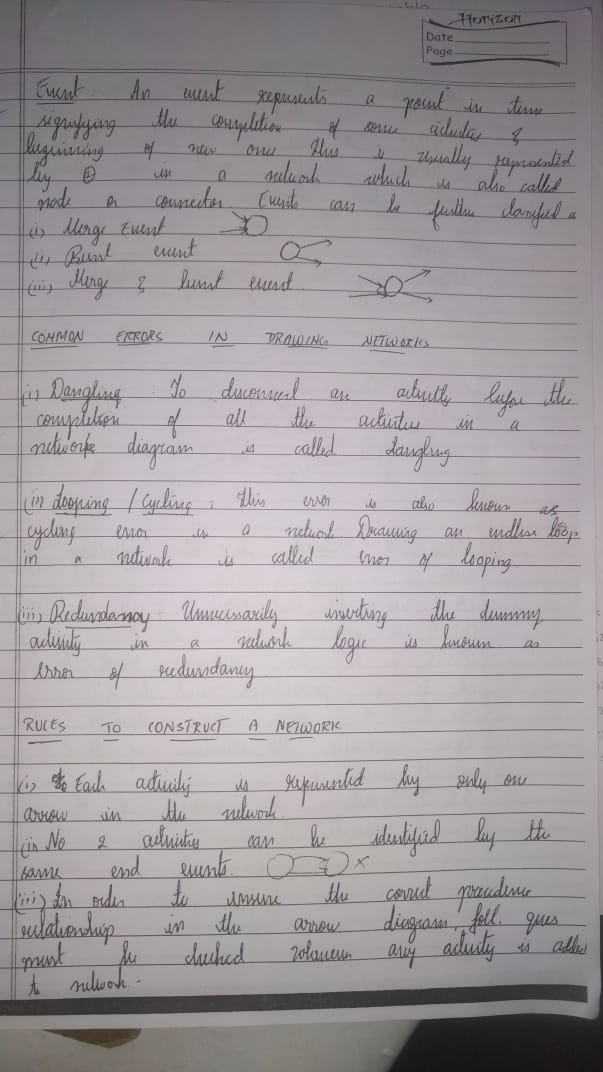 Horizon
Date
Page
Event: An event represents a point in time
signifying the completion of some activities &
beginning of new ones This is usually represented
by in a network which is also called
node or connector. Events can be further classified as
(i) Merge Event
(ii) Burst event
(iii) Merge & burst event
COMMON ERRORS IN DRAWING NETWORKS
(i) Dangling: To disconnect an activity before the
completion of all the activities in a
network diagram is called dangling
(ii) Looping / Cycling: This error is also known as
cycling error in a network. Drawing an endless loop
in a network is called error of looping.
(iii) Redundancy: Unnecessarily inserting the dummy
activity in a network logic is known as
error of redundancy
RULES TO CONSTRUCT A NETWORK
(i) Each activity is represented by only one
arrow in the network.
(ii) No 2 activities can be identified by the
same end events. ×
(iii) In order to ensure the correct precedence
relationship in the arrow diagram, foll. ques
must be checked whenever any activity is added
to network.